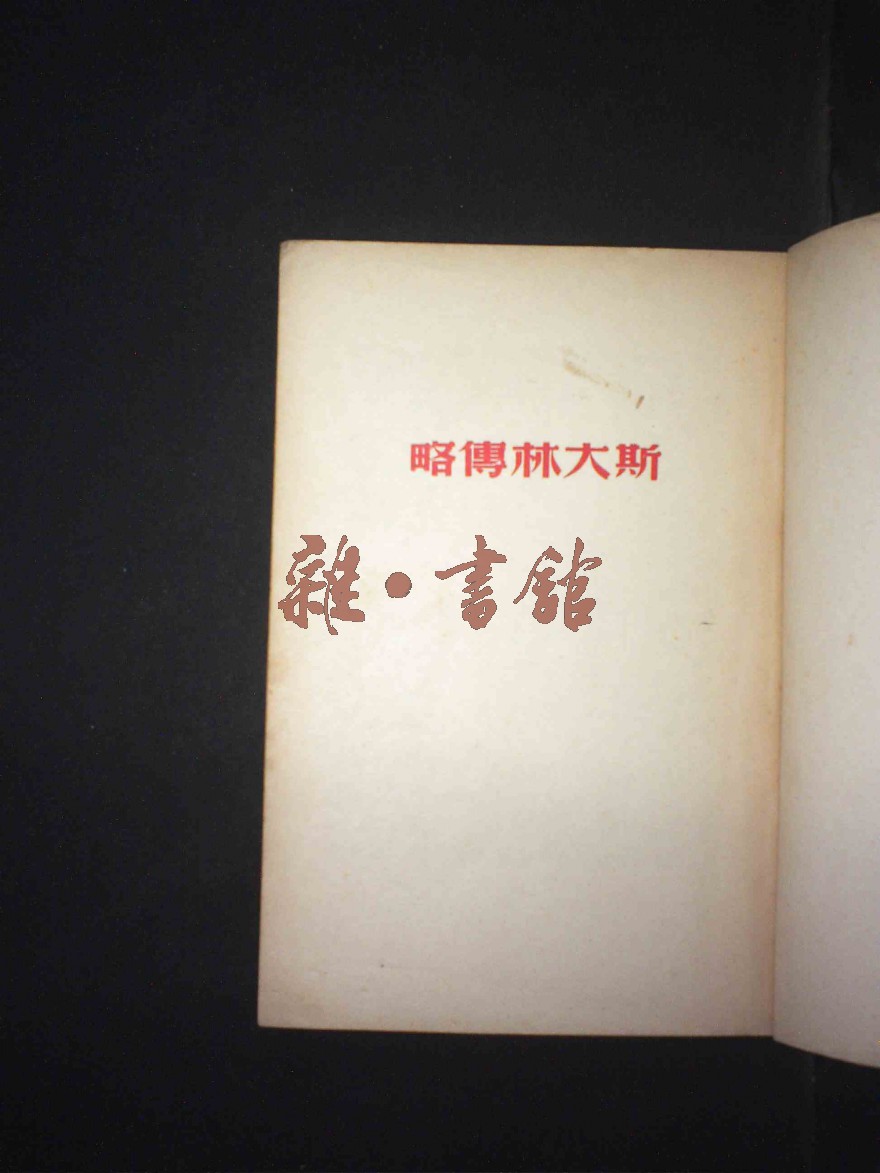 斯大林傳略
雜·書館